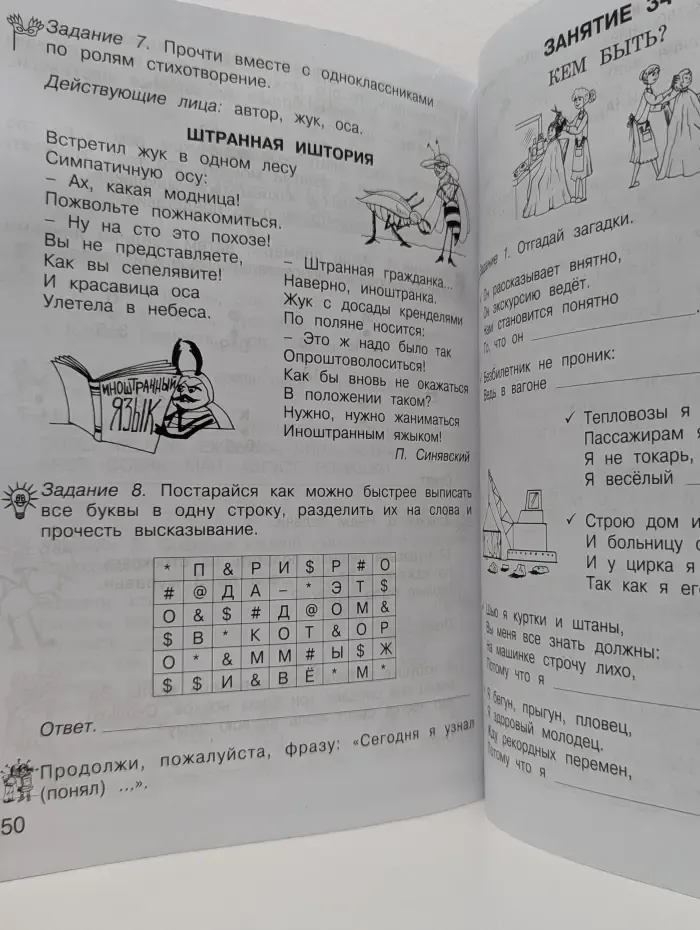 Задание 7. Прочти вместе с одноклассниками
по ролям стихотворение.
Действующие лица: автор, жук, оса.
ШТРАННАЯ ИШТОРИЯ
Встретил жук в одном лесу
Симпатичную осу:
– Ах, какая модница!
Пожвольте пожнакомиться.
– Ну на сто это похозе!
Вы не представляете,
Как вы сепелявите!
И красавица оса
Улетела в небеса.
– Штранная гражданка...
Наверно, иноштранка.
Жук с досады кренделями
По поляне носится:
– Это ж надо было так
Опроштоволоситься!
Как бы вновь не окажаться
В положении таком?
Нужно, нужно жаниматься
Иноштранным яжыком!
П. Синявский
ИНОШТРАННЫЙ
ЯЗЫК
Задание 8. Постарайся как можно быстрее выписать
все буквы в одну строку, разделить их на слова и
прочесть высказывание.
* П & Р И $ Р # О
# @ Д А – * Э Т $
О & $ # Д @ О М &
$ В * К О Т & О Р
О * & М М # Ы $ Ж
$ $ И & В Ё * М *
Ответ.
Продолжи, пожалуйста, фразу: «Сегодня я узнал
(понял) ...».
50
ЗАНЯТИЕ 34
КЕМ БЫТЬ?
Задание 1. Отгадай загадки.
Он рассказывает внятно,
Он экскурсию ведёт.
Нам становится понятно
То, что он
Безбилетник не проник:
Ведь в вагоне
✓ Тепловозы я
Пассажирам я
Я не токарь,
Я весёлый
✓ Строю дом и
И больницу с
И у цирка я
Так как я его
Шью я куртки и штаны,
Вы меня все знать должны:
На машинке строчу лихо,
Потому что я
Я бегун, прыгун, пловец,
Я здоровый молодец.
Жду рекордных перемен,
Потому что я